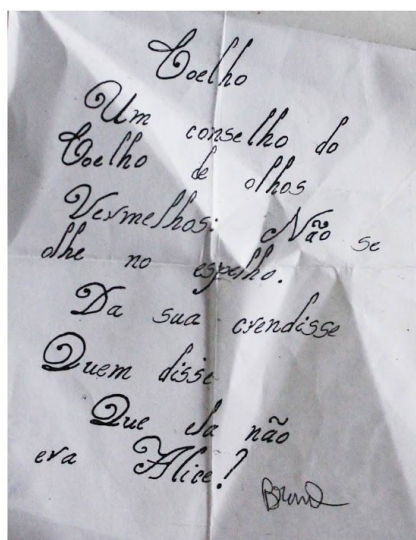 Coelho
Um conselho do
Coelho de olhos
Vermelhos: Não se
olhe no espelho.
Da sua crendisse
Quem disse
Que ela não
era Alice?